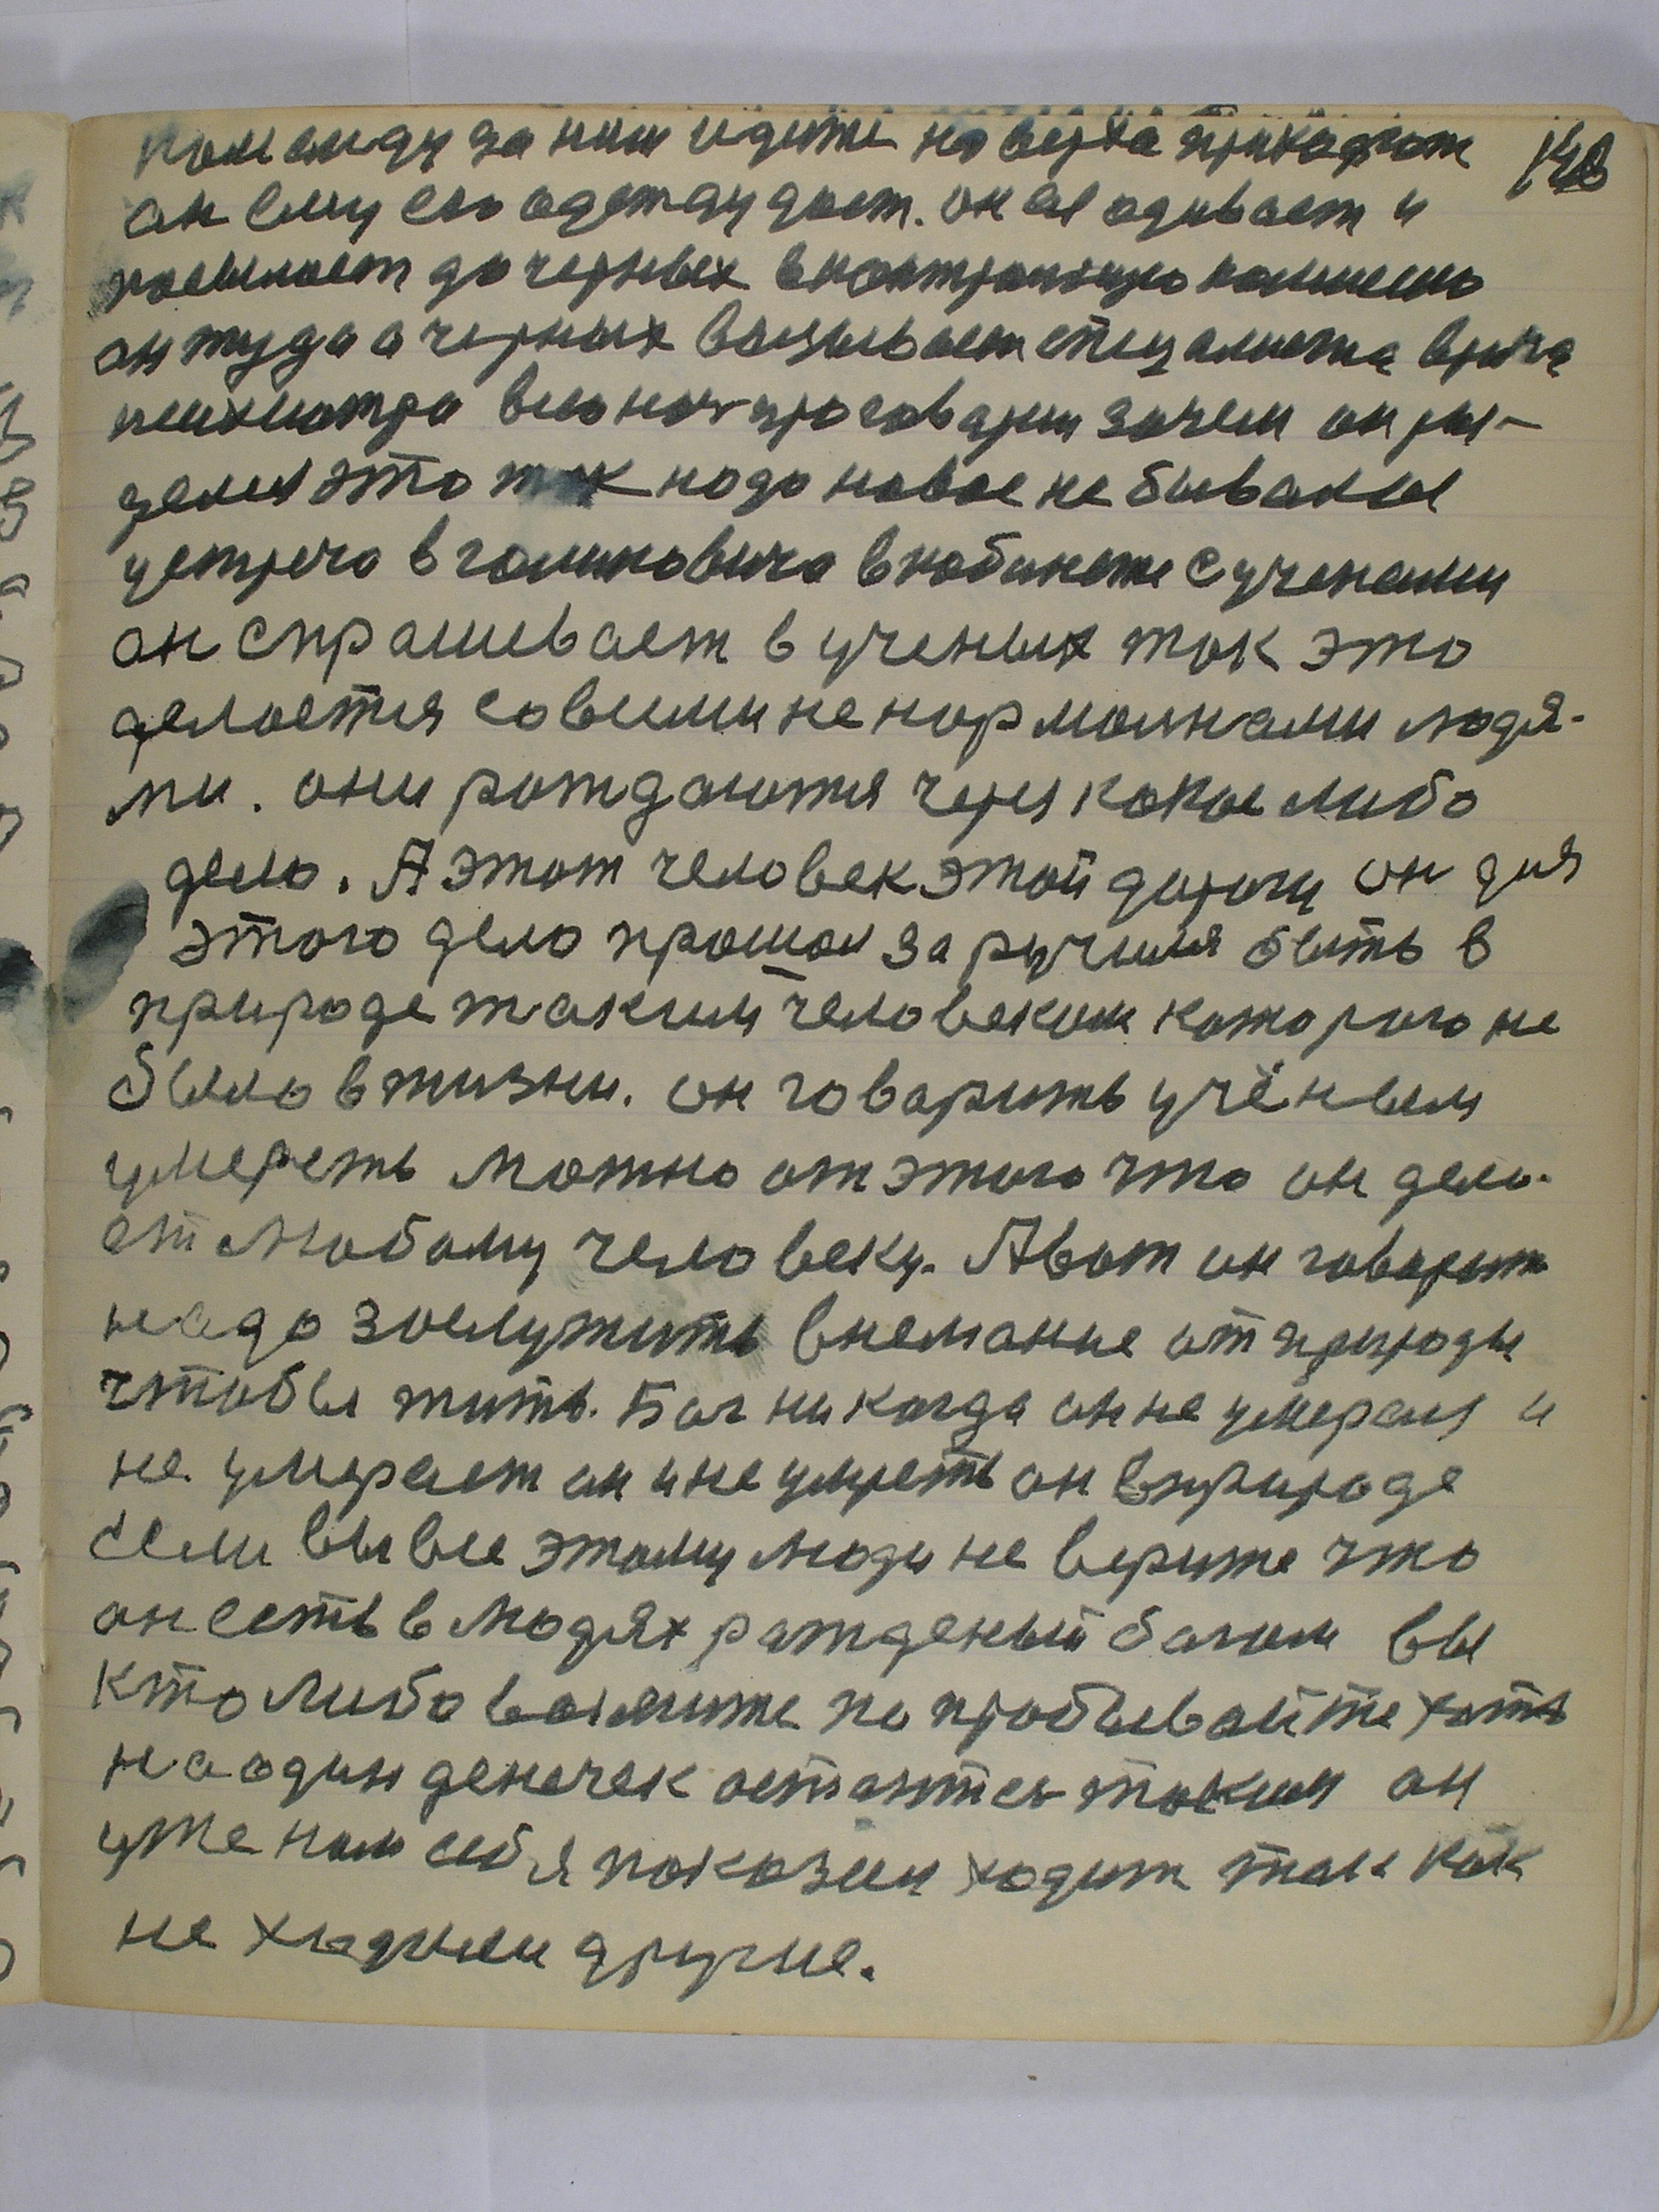 команду за ним идите на верха приходят 140
он ему его одежду дает. он ее одивает и
посылает до черных в контрольную комисию
он туда а черных вызывает специалиста врача
психиатра его нач проговарии зачем он ры-
делся это так надо новое не бывалы
устреча в голиковича в кабинете с учеными
он спрашивает в ученых так это
делается со всими не нормолнами людя-
ми. они рождаются через какое либо
дело. А этот человек этой дароги он для
этого дело прошол заручился быть в
природе таким человеком которого не
было в жизни. он говарить учёным
умереть можно от этого что он дела-
ет любому человеку. А вот он говорить
надо заслужить внемание от природы
чтобы жить. Бог никогда он не умерал и
не умерает он и не умреть он в природе
если вы все этому люди не верите что
он есть в людях рожденый богом вы
кто либо возмите попробывайте хоть
на один денечек астаптсь таким он
уже нам себя показал ходит там как
не ходили другие.